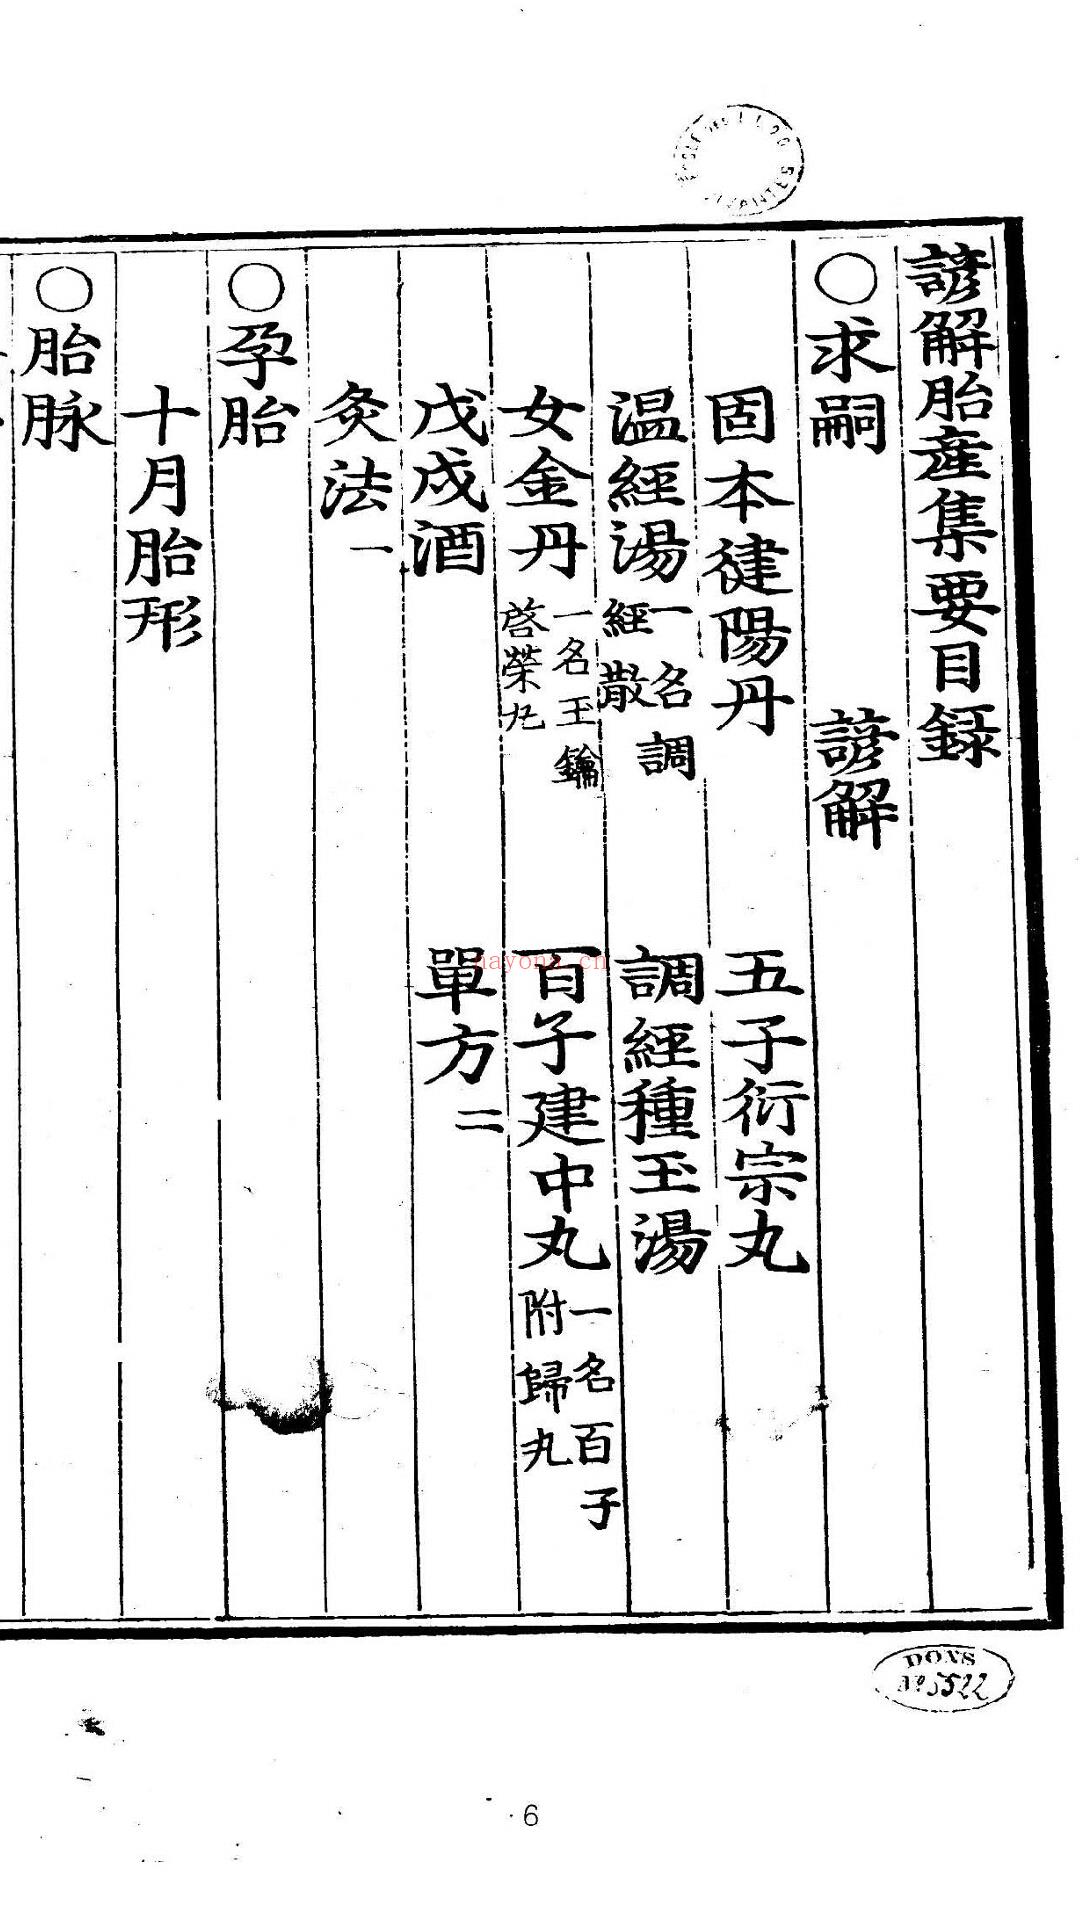 諺解胎産集要目録
○求嗣 諺解
固本健陽丹 五子衍宗丸
温經湯 一名調經散 調經種玉湯
女金丹 一名玉鑰啓榮丸 百子建中丸 一名百子附歸丸
戊戌酒 單方 二
灸法 一
○孕胎
十月胎形
○胎脉
DONS
Nº 5522
nayona.cn
6